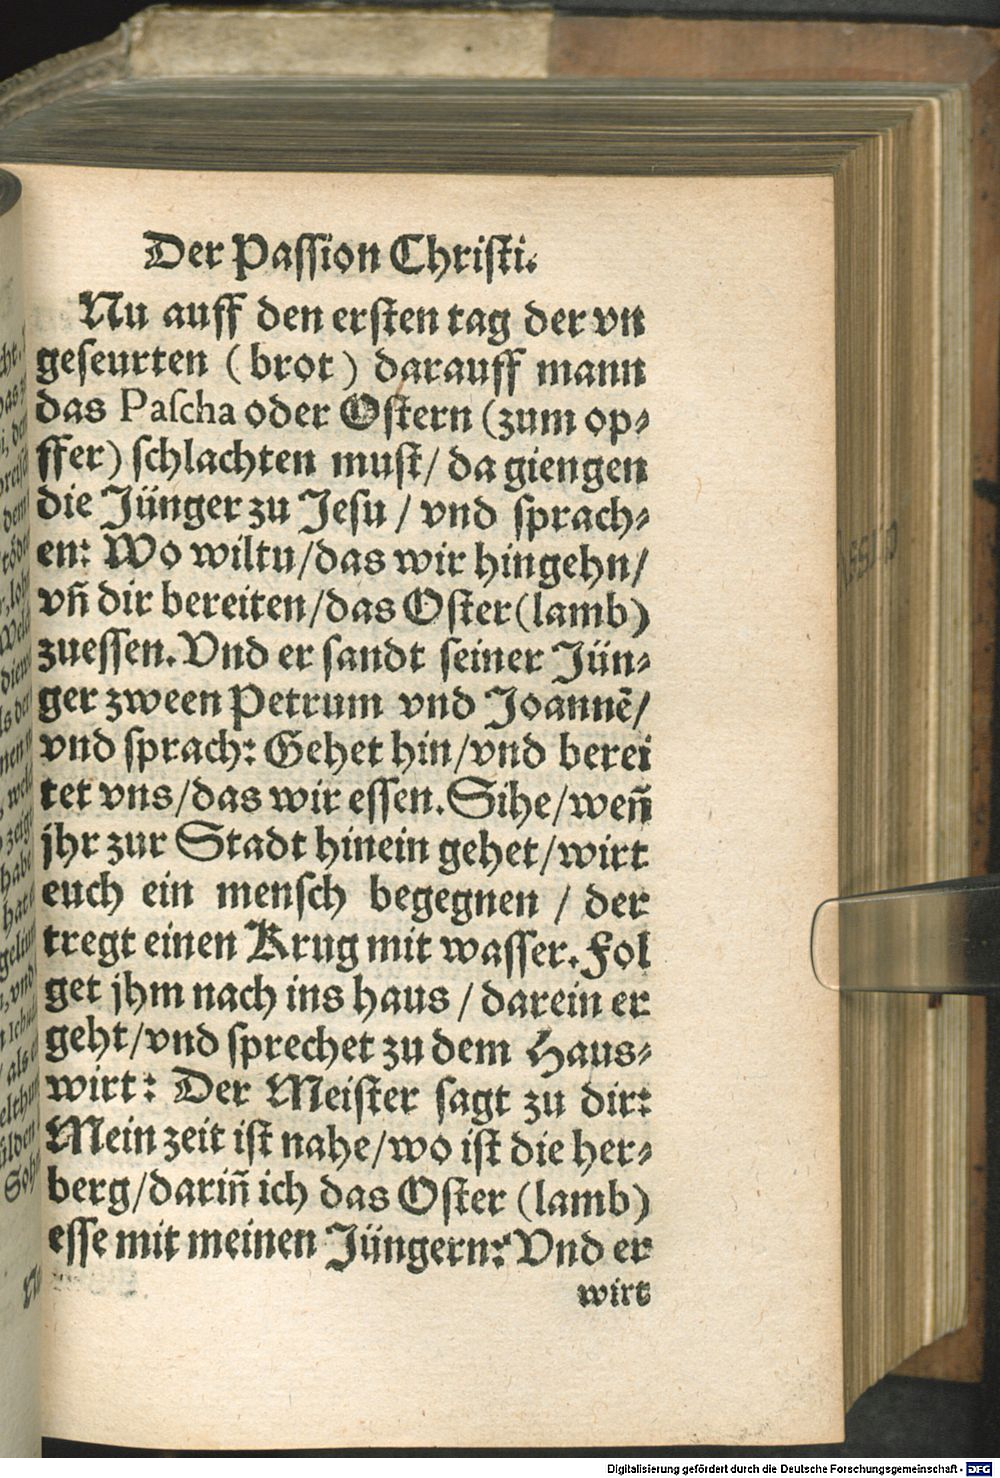 Der Passion Christi.
Nu auff den ersten tag der vn
geseurten ( brot ) darauff mann
das Pascha oder Ostern (zum op⸗
ffer) schlachten must/ da giengen
die Jünger zu Jesu / vnd sprach⸗
en: Wo wiltu/das wir hingehn/
vñ dir bereiten/das Oster(lamb)
zuessen. Vnd er sandt seiner Jün⸗
ger zween Petrum vnd Joannē/
vnd sprach: Gehet hin/vnd berei
tet vns/das wir essen. Sihe/weñ
jhr zur Stadt hinein gehet/wirt
euch ein mensch begegnen / der
tregt einen Krug mit wasser. Fol
get jhm nach ins haus / darein er
geht/vnd sprechet zu dem Haus⸗
wirt: Der Meister sagt zu dir:
Mein zeit ist nahe/wo ist die her⸗
berg/dariñ ich das Oster (lamb)
esse mit meinen Jüngern: Vnd er
wirt
Digitalisierung gefördert durch die Deutsche Forschungsgemeinschaft - DFG